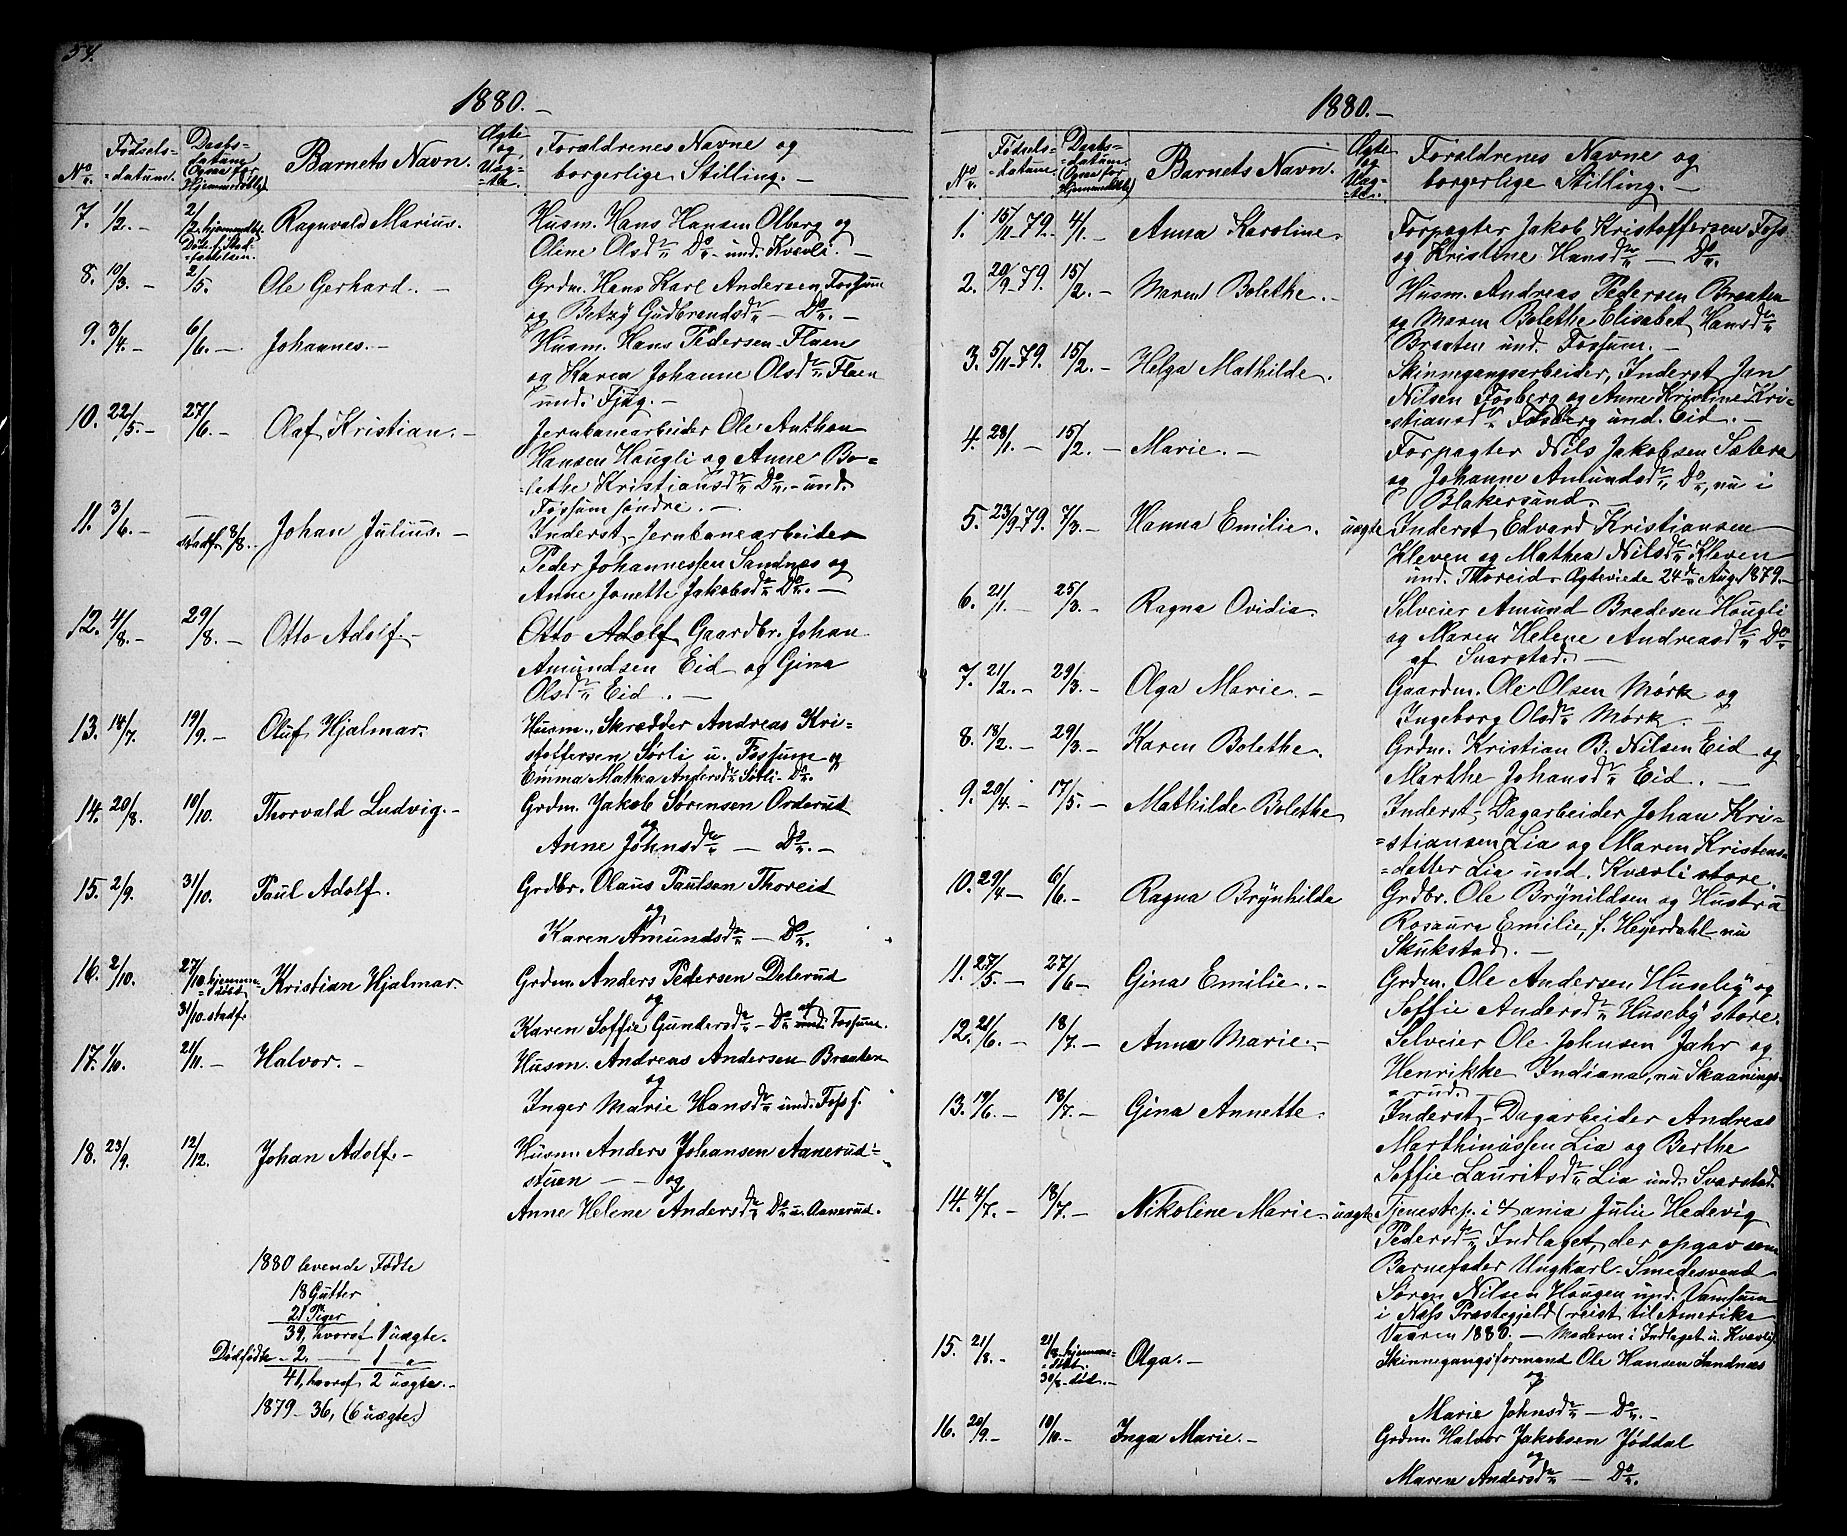 54.
1880.-
No. Fødsels-datum. Daabs-datum (Ogsaa for Hjemmedøbte) Barnets Navn. Ægte og Uæg-te. Forældrenes Navne og borgerlige Stilling.-
7. 1/2.- 2/2. hjemmedbt. Ragnvald Marius. Husm. Hans Hansen Olberg og
Oline Olsdr Do. und. Kværli.-
8. 10/3.- 2/5. Ole Gerhard.- Grdm. Hans Karl Andersen Fossum
og Betzy Gudbrandsdr - Do.-
9. 3/4.- 6/6.- Johannes.- Husm. Hans Pedersen Flaen
og Karen Johanne Olsdr Flaen
und. Fjug.-
10. 22/5.- 27/6.- Olaf Kristian.- Jernbanearbeider Ole Anthon
Hansen Hougli og Anne Bo-
lethe Kristiansdr Do.- und.
Fossum søndre.-
11. 3/6.- stadf. 8/8. Johan Julius.- Inderst Jernbanearbeider
Peder Johannessen Sandnæs og
Anne Jonette Jakobsdr Do.-
12. 4/8.- 29/8.- Otto Adolf.- Otto Adolf Gaardbr. Johan
Amundsen Eid og Gina
Olsdr Eid.-
13. 14/7. 19/9.- Oluf Hjalmar. Husm., Skrædder Andreas Kri-
stoffersen Sørli u. Fossum og
Emma Mathea Andersdr Sørli Do.
14. 20/8. 10/10. Thorvald Ludvig.- Grdm. Jakob Sørensen Orderud
og
Anne Johnsdr - Do.-
15. 2/9. 31/10. Paul Adolf. Grdbr. Olaus Paulsen Thoreid
og
Karen Amundsdr - Do.
16. 2/10. 27/10 hjemme-døbt 31/10 stadf. Kristian Hjalmar. Grdm. Anders Pedersen Daterud
og
Karen Soffie Gundersdr - Do. af und. Fossum.
17. 1/10. 21/11.- Halvor.- Husm. Andreas Andersen Braaten
og
Inger Marie Hansdr und. Foss f.
18. 23/9. 12/12. Johan Adolf.- Husm. Anders Johansen Aanerud-
stuen - - og
Anne Helene Andersdr Do. u. Aanerud.
1880 levende Fødte
18 Gutter
21 Piger
39, hvoraf 1 uægte.
Dødfødte - 2. - 1 -
41, hvoraf 2 uægte.-
1879 - 36, (6 uægte.)
1880.-
No. Fødsels-datum. Daabs-datum. (Ogsaa for Hjemmedøbte) Barnets Navn. Ægte og Uæg-te. Forældrenes Navne og borgerlige Stilling.-
1. 15/11-79. 4/1.- Anna Karoline. Forpagter Jakob Kristoffersen Foss
og Kristine Hansdr - Do.
2. 20/9-79. 15/2.- Maren Bolethe.- Husm. Andreas Pedersen Braaten
og Maren Bolethe Elisabet Hansdr
Braaten und. Fossum.-
3. 5/11-79. 15/2.- Helga Mathilde. Skinnegangsarbeider, Inderst Jan
Nilsen Fosberg og Anne Kristine Kri-
stiansdr Fosberg und. Eid.-
4. 28/1.- 15/2.- Marie.- Forpagter Nils Jakobsen Sæbera
og Johanne Amundsdr Do, nu i
Blakersund.
5. 23/9-79. 7/3.- Hanna Emilie. uægte Inderst Edvard Kristiansen
Kleven og Mathea Nilsdr Kleven
und. Thoreid. Ægteviede 24de Aug. 1879.-
6. 21/1.- 25/3.- Ragna Ovidia. Selveier Amund Bredesen Hougli
og Maren Helene Andreasdr Do.
af Svarstad.-
7. 21/2.- 29/3.- Olga Marie.- Gaardm. Ole Olsen Mørk og
Ingeborg Olsdr Mørk.-
8. 13/2.- 29/3.- Karen Bolethe. Grdm. Kristian B. Nilsen Eid og
Marthe Johansdr Eid.-
9. 20/4.- 17/5.- Mathilde Bolethe Inderst, Dagarbeider Johan Kri-
stiansen Lia og Maren Kristens-
datter Lia und. Kværli store.
10. 29/4.- 6/6.- Ragna Brynhilde Grdbr. Ole Brynildsen og Hustru
Rosaura Emilie, f. Heyerdahl nu
Skukstad.-
11. 27/5.- 27/6- Gina Emilie.- Grdm. Ole Andersen Huseby og
Soffie Andersdr Huseby store.
12. 21/6.- 18/7.- Anna Marie.- Selveier Ole Johnsen Jahr og
Henrikke Indiana, nu Skaanings-
rud.
13. 19/6.- 18/7.- Gina Annette. Inderst Dagarbeider Andreas
Marthinussen Lia og Berthe
Soffie Lauritsdr Lia und. Svarstad.
14. 4/7.- 18/7.- Nikoline Marie. uægte Tjenestep. i Xania Julie Hedevig
Pedersdr Indlaget, der opgav som
Barnefader Ungkarl Smedesvend
Søren Nilsen Hougen und. Vamsum
i Næss Præstegjeld (reist til Amerika
Vaaren 1880.- Moderen i Indlaget u. Kværli)
15. 21/8.- 21/8. hjemme-døbt. 30/8 død.- Olga.- Skinnegangsformand Ole Hansen Sandnæs
og
Marie Johnsdr - Do.-
16. 20/9.- 10/10.- Inga Marie.- Grdm. Halvor Jakobsen Jøddal
og
Maren Andersdr - Do.